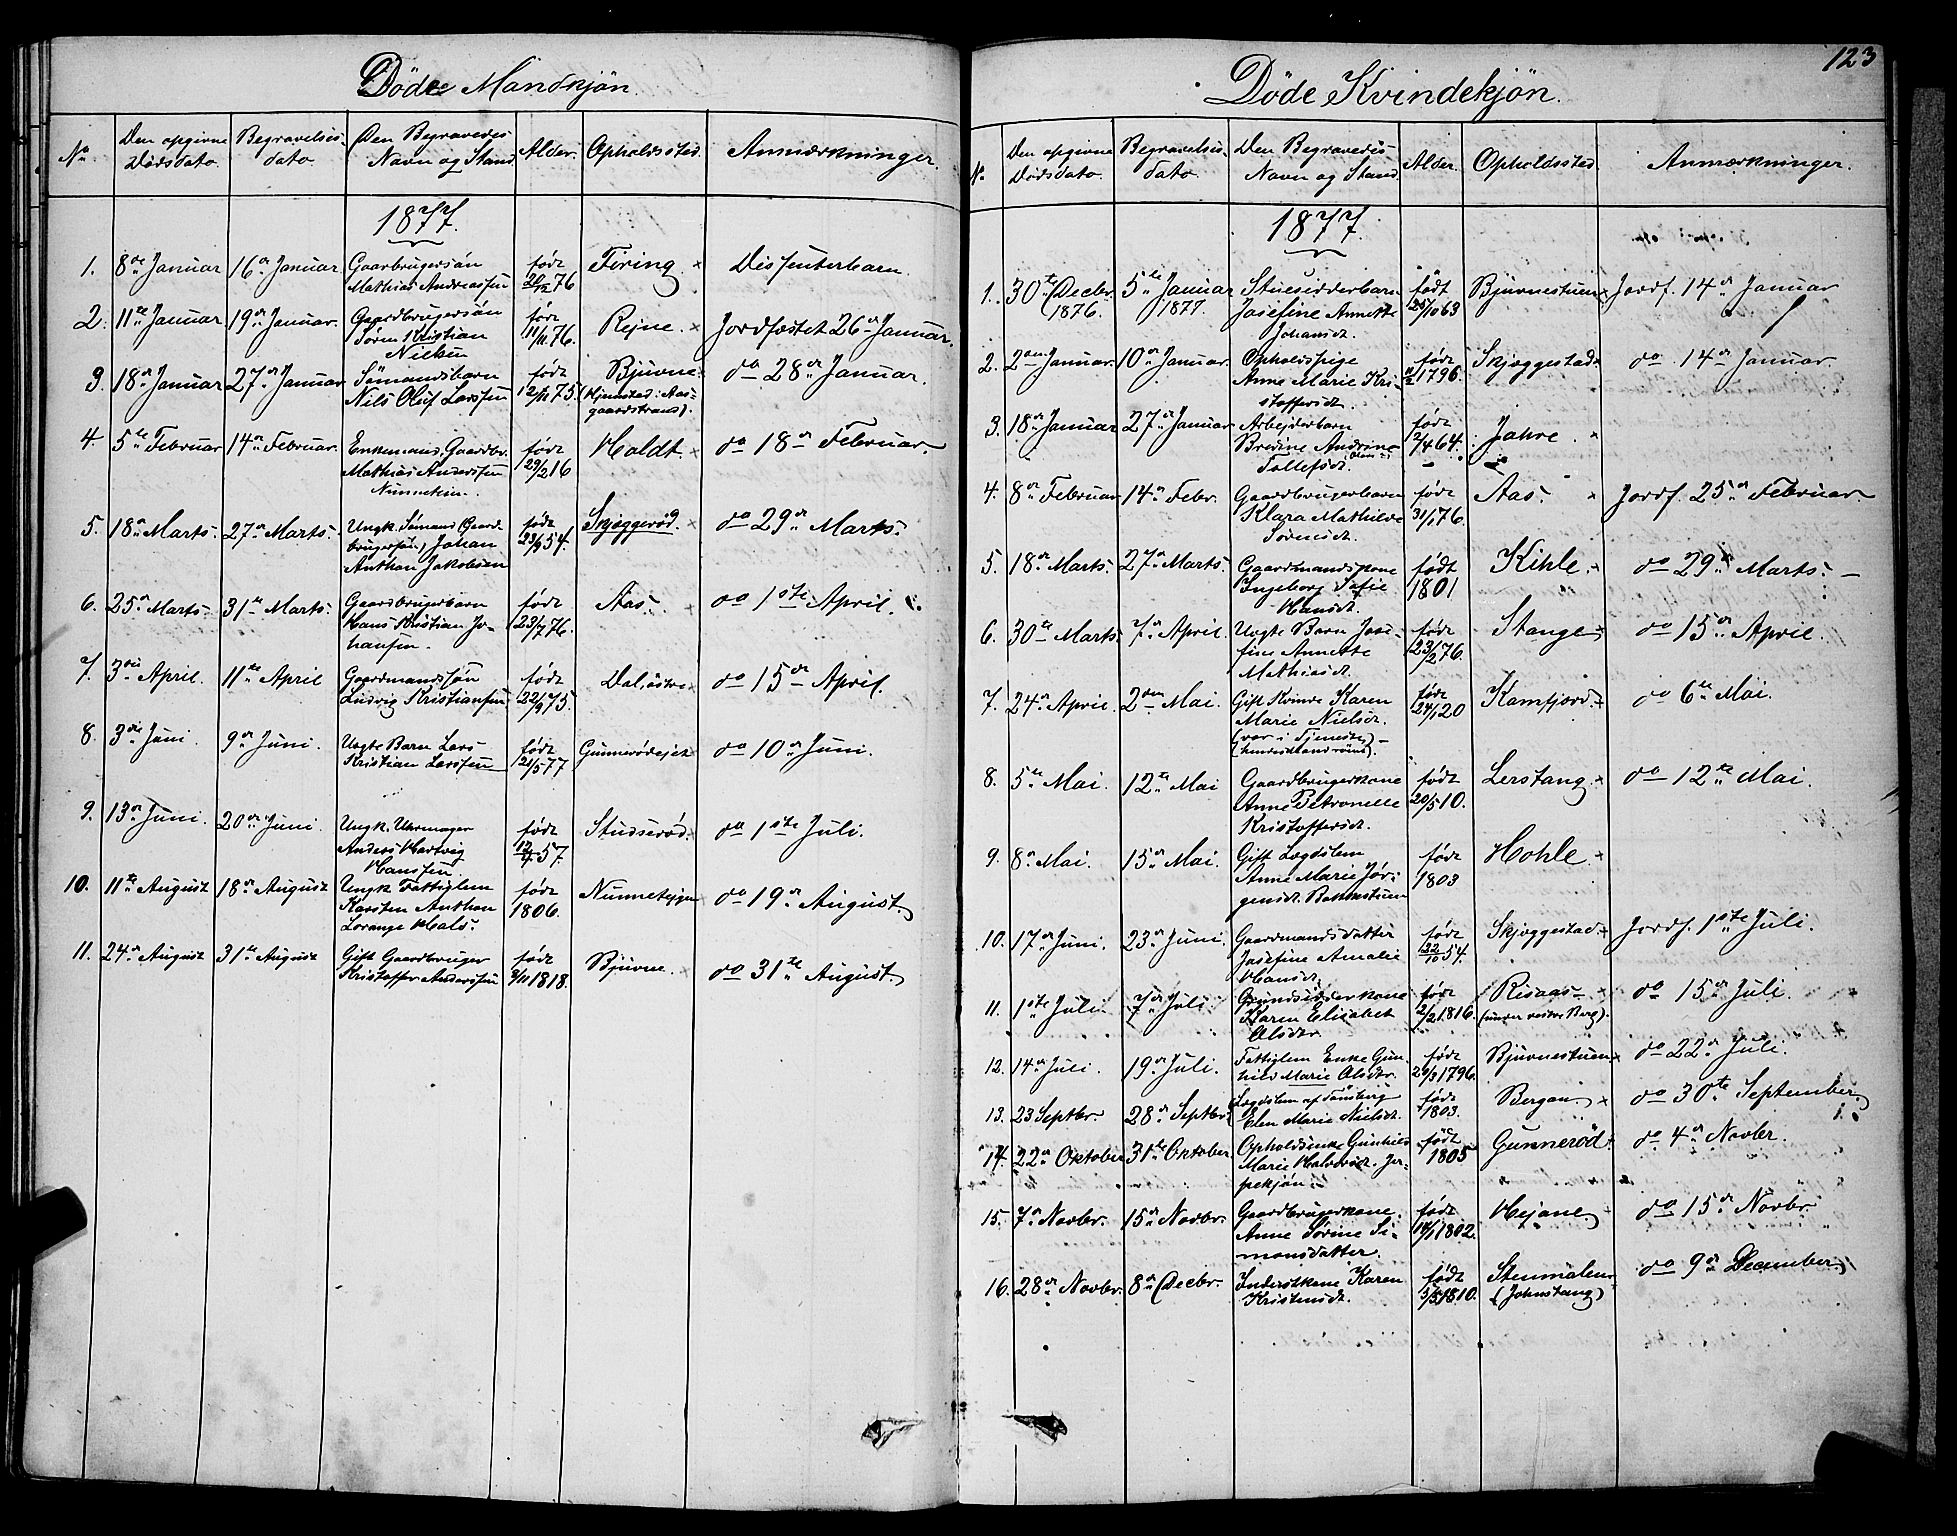 Døde Mandkjøn.
No
Den opgivne Dødsdato
Begravelsesdato
Den Begravedes Navn og Stand
Alder.
Opholdssted.
Anmærkninger.
1877.
1. 8de Januar 16de Januar Gaardbrugersøn født Firing × Dissenterbarn.
Mathias Andreassen 20/12 76
2. 11te Januar 19de Januar. Gaardbrugersøn født Rejne. × Jordfæstet 26de Januar.
Søren Kristian 11/11 76.
Nielsen
3. 18de Januar 27de Januar Sømandsbarn født Bjuvne do 28de Januar.
Nils Oluf Larssen 12/11 75. (Hjemsted: Aas-
gaardstrand).
4. 5te Februar 14de Februar. Enkemand, Gaardbr. født Holdt. × do 18de Februar.
Mathias Anderssen 29/2 16
5. 18de Marts. 27de Marts. Ungk. Sømand (Gaard- født Skjeggerød. × do 29de Marts.
brugersøn) Johan 23/9 54.
Anthon Jakobsen
6. 25de Marts. 31te Marts. Gaardbrugerbarn født Aas. × do 1ste April.
Hans Kristian Jo- 23/7 76.
hansen.
7. 3die April. 11te April Gaardmandssøn født Dal, østre do 15de April.
Ludvig Kristiansen 22/9 75.
8. 3die Juni. 9de Juni. Uægte Barn Lars født Gunnerødejet × do 10de Juni.
Kristian Larssen 21/5 77
9. 13de Juni. 20de Juni. Ungk. Urmager født Studserød. do 1ste Juli.
Anders Hartvig 12/4 57.
Hanssen.
10. 11te August 18de August Ungk. Fattiglem født do 19de August.
Karsten Anthon 1806.
Lorange Hals.
11. 24de August 31te August Gift Gaardbruger født Bjuvne. × do 31te August.
Kristoffer Anderssen 3/11 1818.
123
Døde Kvindekjøn.
No
Den opgivne Dødsdato.
Begravelsesdato.
Den Begravedes Navn og Stand
Alder.
Opholdssted.
Anmærkninger.
1877.
1. 30te Decbr. 5te Januar Stuesidderbarn født Bjuvnestuen × Jordf. 14de Januar
1876. 1877. Josefine Annette 25/10 63
Johansdt.
2. 2den Januar. 10de Januar. Opholdspige født Skjæggestad do 14de Januar.
Anne Marie Kri- 11/2 1796.
stoffersdt.
3. 18de Januar 27de Januar. Arbejderbarn født Jahre. ×
Bredine Andrine 12/4 64.
Tollefsdt.
4. 8de Februar 14de Febr. Gaardbrugerbarn født Aas. × Jordf. 25de Februar
Klara Mathilde 31/1 76.
Sørensdt.
5. 18de Marts. 27de Marts. Gaardmandskone født Kihle. × do 29de Marts.
Ingeborg Sofie 1801
Hansdt.
6. 30te Marts. 7de April. Uægte Barn Jose- født Stange × do 15de April.
fine Annette 23/2 76.
Mathiasdt.
7. 24de April. 2den Mai. Gift Kvinde Karen født Kamfjord. × do 6te Mai.
Marie Nielsdt. 24/1 20
(var i Tjeneste,)
8. 5te Mai. 12te Mai Gaardbrugerkone født Lerstang. × do 12te Mai.
Anne Petronelle 20/5 10.
Kristoffersdt.
9. 8de Mai. 15de Mai. Gift Lægdslem født Hohle ×
Anne Marie Jør- 1803
gensdt. Bakkestuen
10. 17de Juni. 23de Juni. Gaardmandsdatter født Skjæggestad. × Jordf. 1ste Juli.
Josefine Amalie 22/10 54.
Hansdt.
11. 1ste Juli. 7de Juli. Grundsidderkone født Risaas × do 15de Juli.
Karen Elisabet 2/2 1816. (under vestre Berg).
Olsdtr.
12. 14de Juli. 19de Juli. Fattiglem Enke Gun- født Bjuvnestuen × do 22de Juli.
hild Marie Olsdtr. 29/3 1796.
13. 23 Septbr 28de Septbr. Lægdslem af Tønsberg født Bergan. × do 30te September
Elen Marie Nielsdt. 1803.
14. 22de Oktober 31te Oktober Opholdsenke Gunhild født Gunnerød. × do 4de Novbr.
Marie Halvorsdt. Jer- 1805
pekjøn.
15. 7de Novbr. 15de Novbr. Gaardbrugerkone født Hejane do 15de Novbr
Anne Sørine Si- 14/1 1802.
monsdatter.
16. 28de Novbr. 8de Decbr. Inderstkone Karen født Stenmalen do 9de December.
Kristensdt. 3/5 1810. (Johnstang)